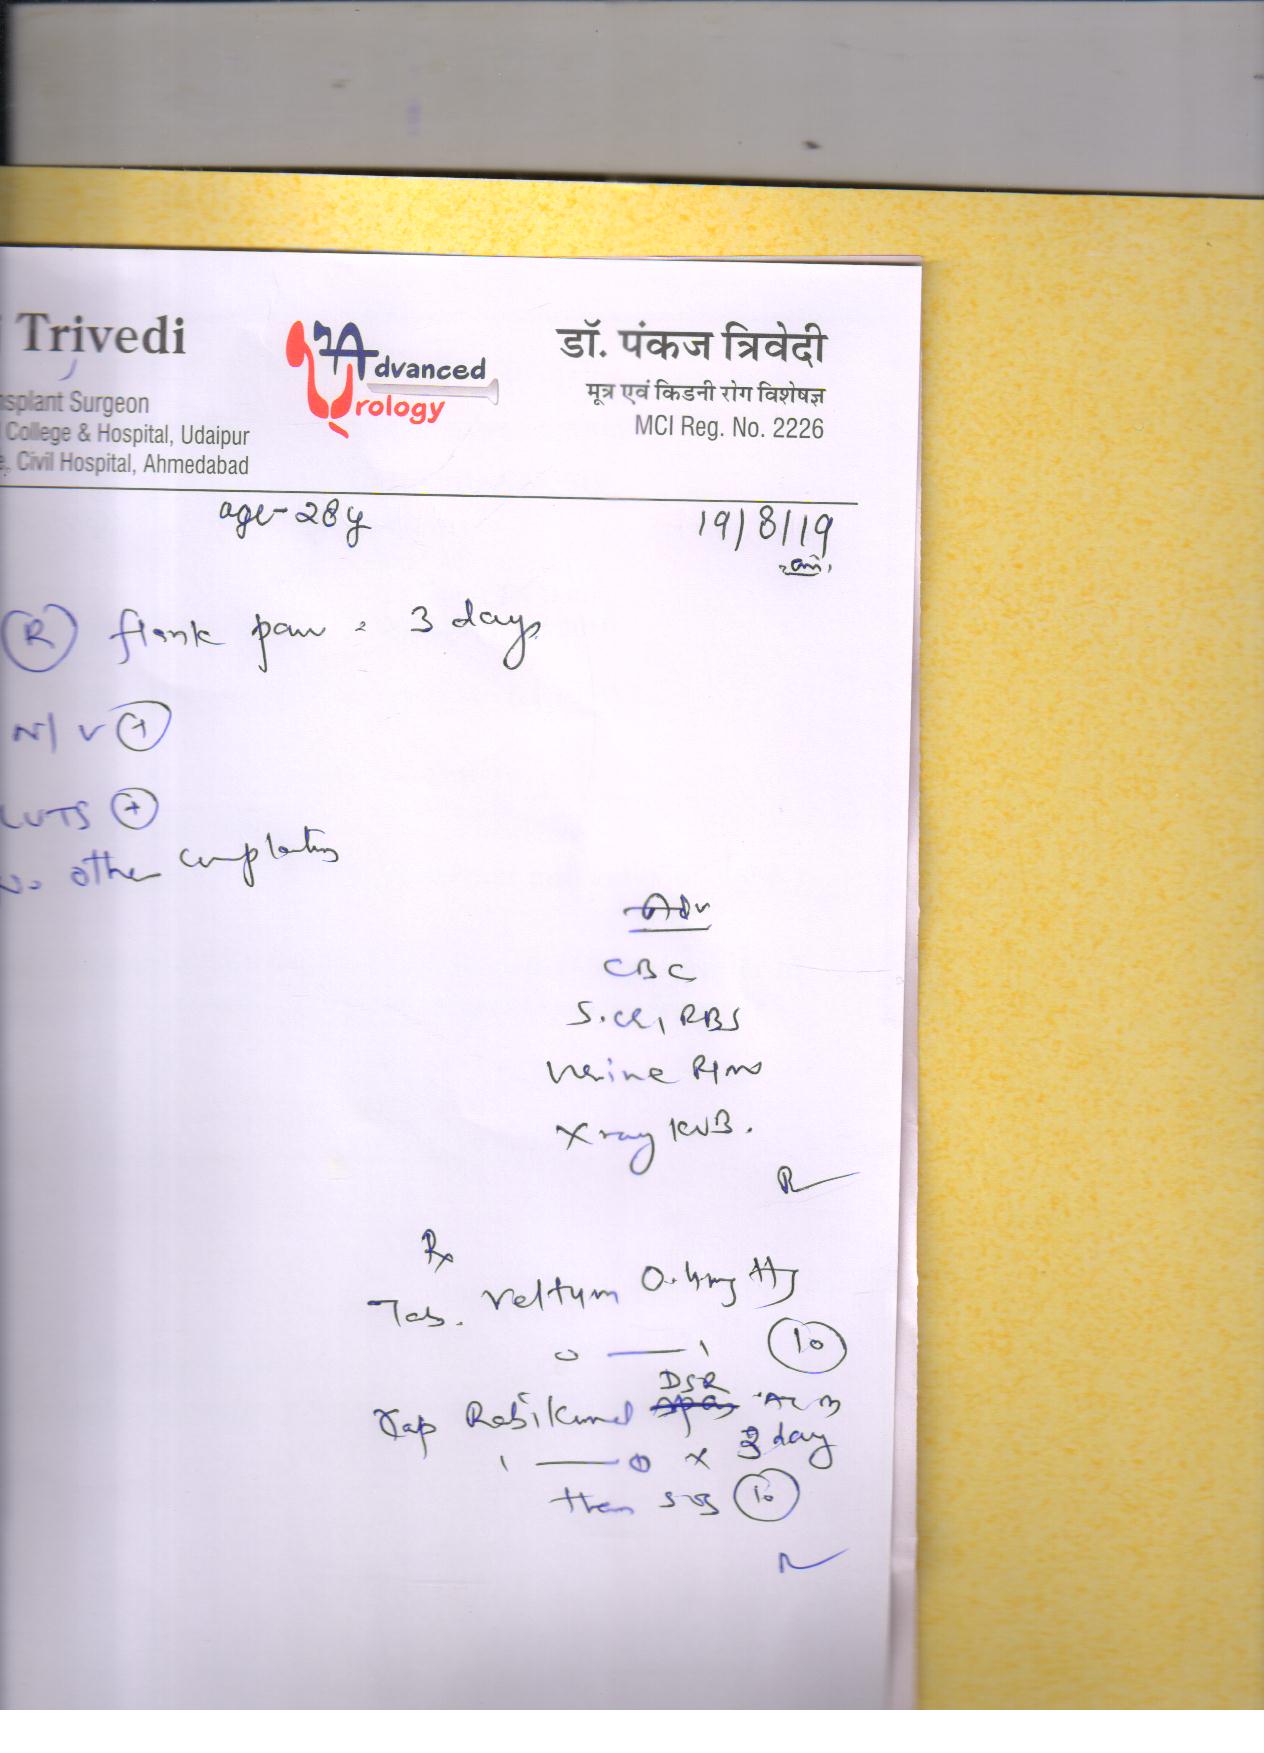 Trivedi
Advanced
Urology
डॉ. पंकज त्रिवेदी
मूत्र एवं किडनी रोग विशेषज्ञ
MCI Reg. No. 2226
nsplant Surgeon
College & Hospital, Udaipur
e, Civil Hospital, Ahmedabad
age - 28y
19/8/19
R flank pain 3 days
N/V +
LUTS +
No other
Adv
CBC
S.cr, RBS
Urine R/M
X ray KUB.
Rx
Tab. Veltam 0.4mg
0 — 1 10
Cap DSR
1 — 0 x 3 day
then SOS 10